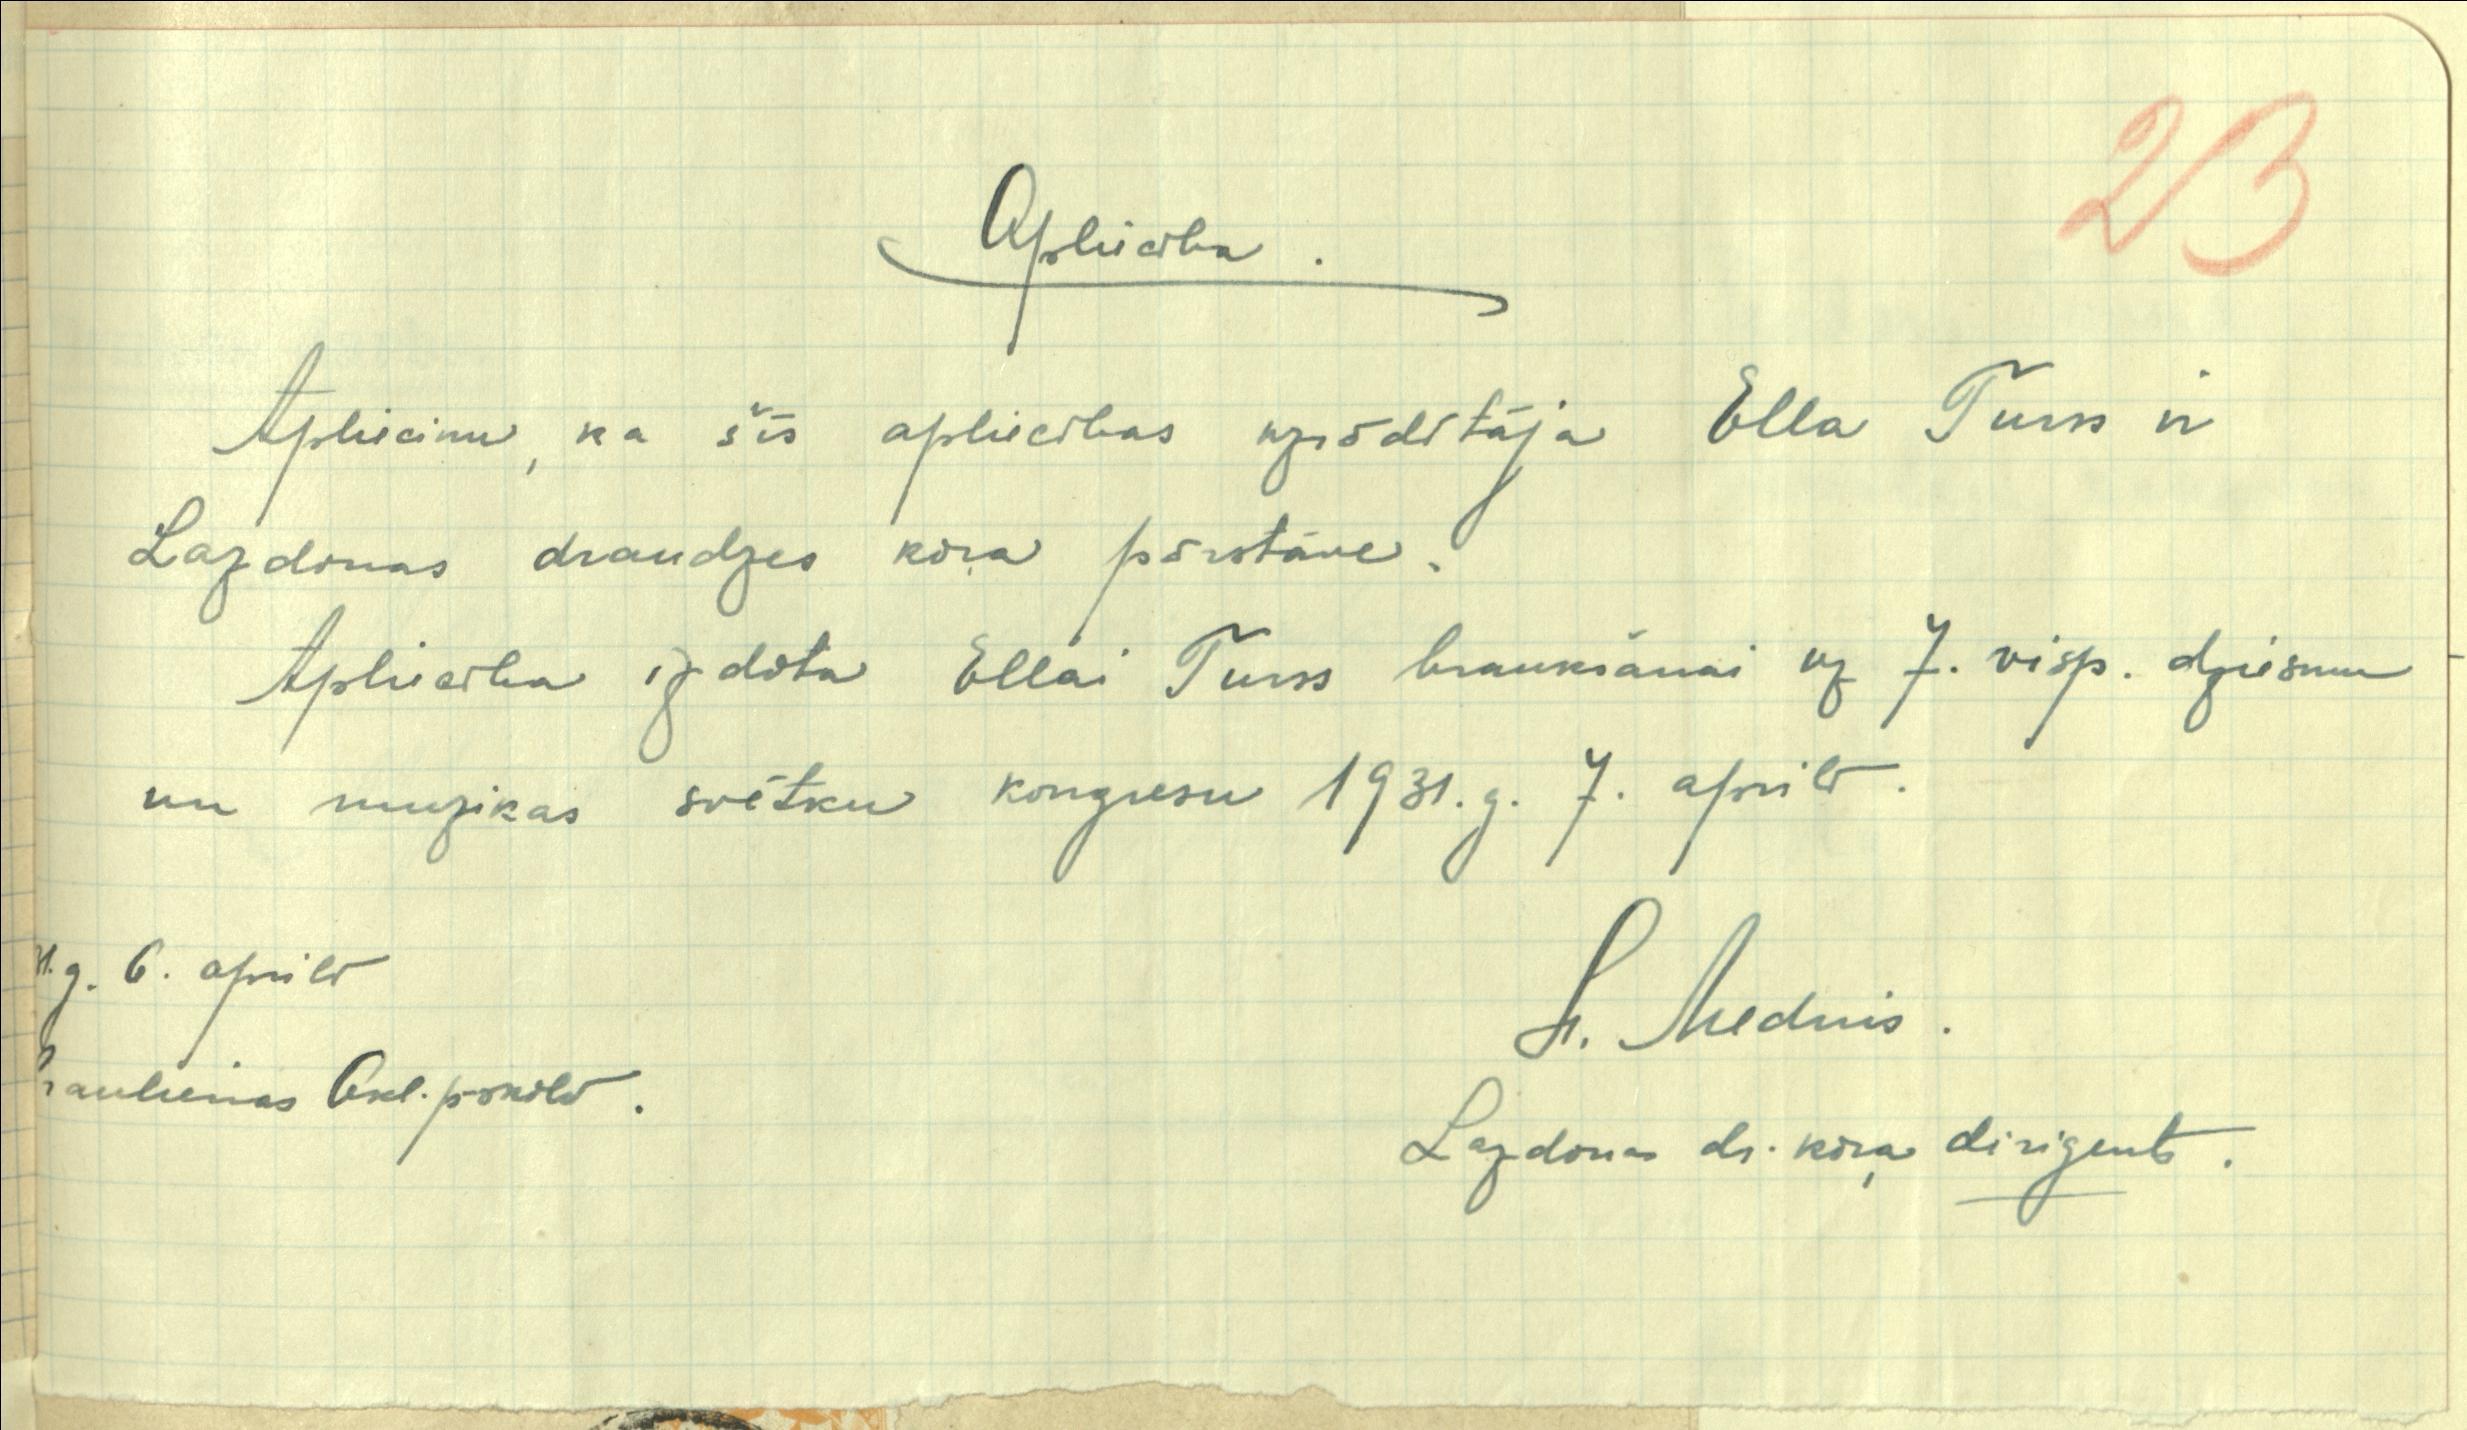 23
Apliecība.
Apliecinu, ka šīs apliecības uzrādītāja Ella Turss ir
Lazdonas draudzes koŗa pārstāve.
Apliecība izdota Ellai Turss braukšanai uz 7. visp. dziesmu
un muzikas svētku kongresu 1931. g. 7. aprilī.
31. g. 6. aprilī
raulienas 6kl. p-skolā.
Mednis.
Lazdonas dr. koŗa dirigents.